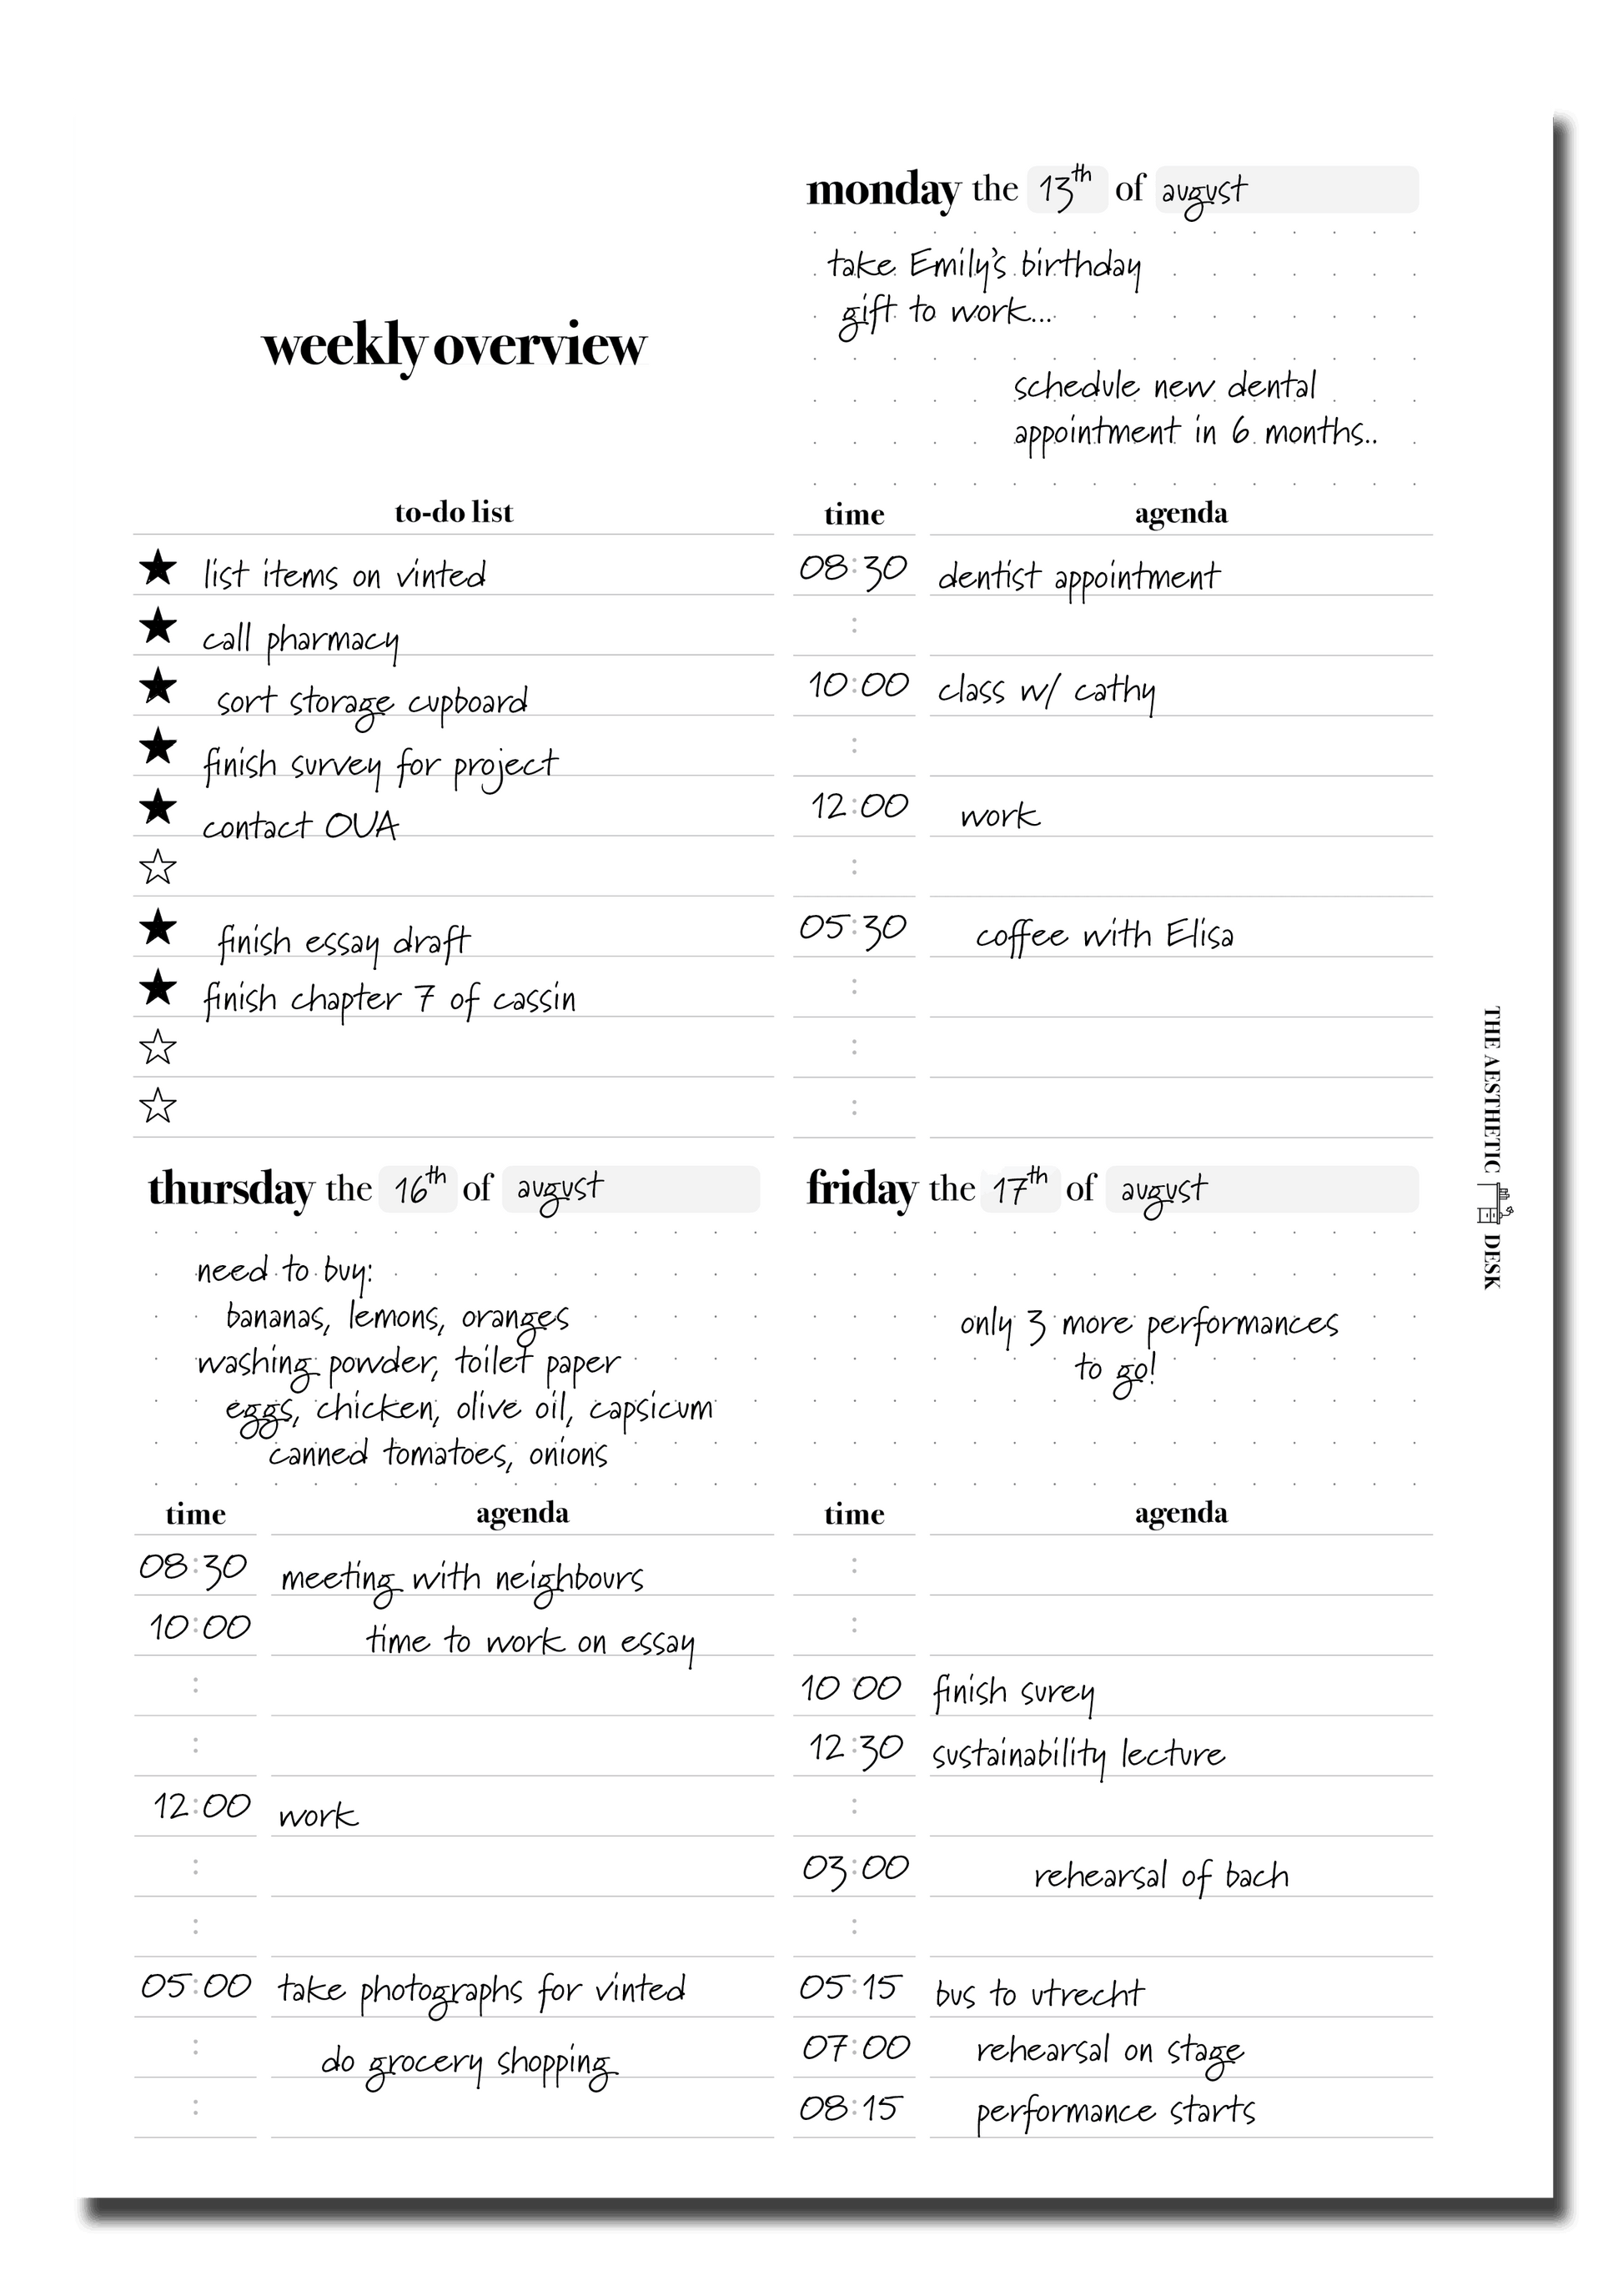 weekly overview
to-do list
list items on vinted
call pharmacy
sort storage cupboard
finish survey for project
contact OUA
finish essay draft
finish chapter 7 of cassin
monday the 13th of august
take Emily's birthday
gift to work...
schedule new dental
appointment in 6 months..
time agenda
08:30 dentist appointment
:
10:00 class w/ cathy
:
12:00 work
:
05:30 coffee with Elisa
:
:
:
thursday the 16th of august
need to buy:
bananas, lemons, oranges
washing powder, toilet paper
eggs, chicken, olive oil, capsicum
canned tomatoes, onions
time agenda
08:30 meeting with neighbours
10:00 time to work on essay
:
:
12:00 work
:
:
05:00 take photographs for vinted
: do grocery shopping
:
friday the 17th of august
only 3 more performances
to go!
time agenda
:
:
10 00 finish surey
12:30 sustainability lecture
:
03:00 rehearsal of bach
:
05:15 bus to utrecht
07:00 rehearsal on stage
08:15 performance starts
THE AESTHETIC DESK